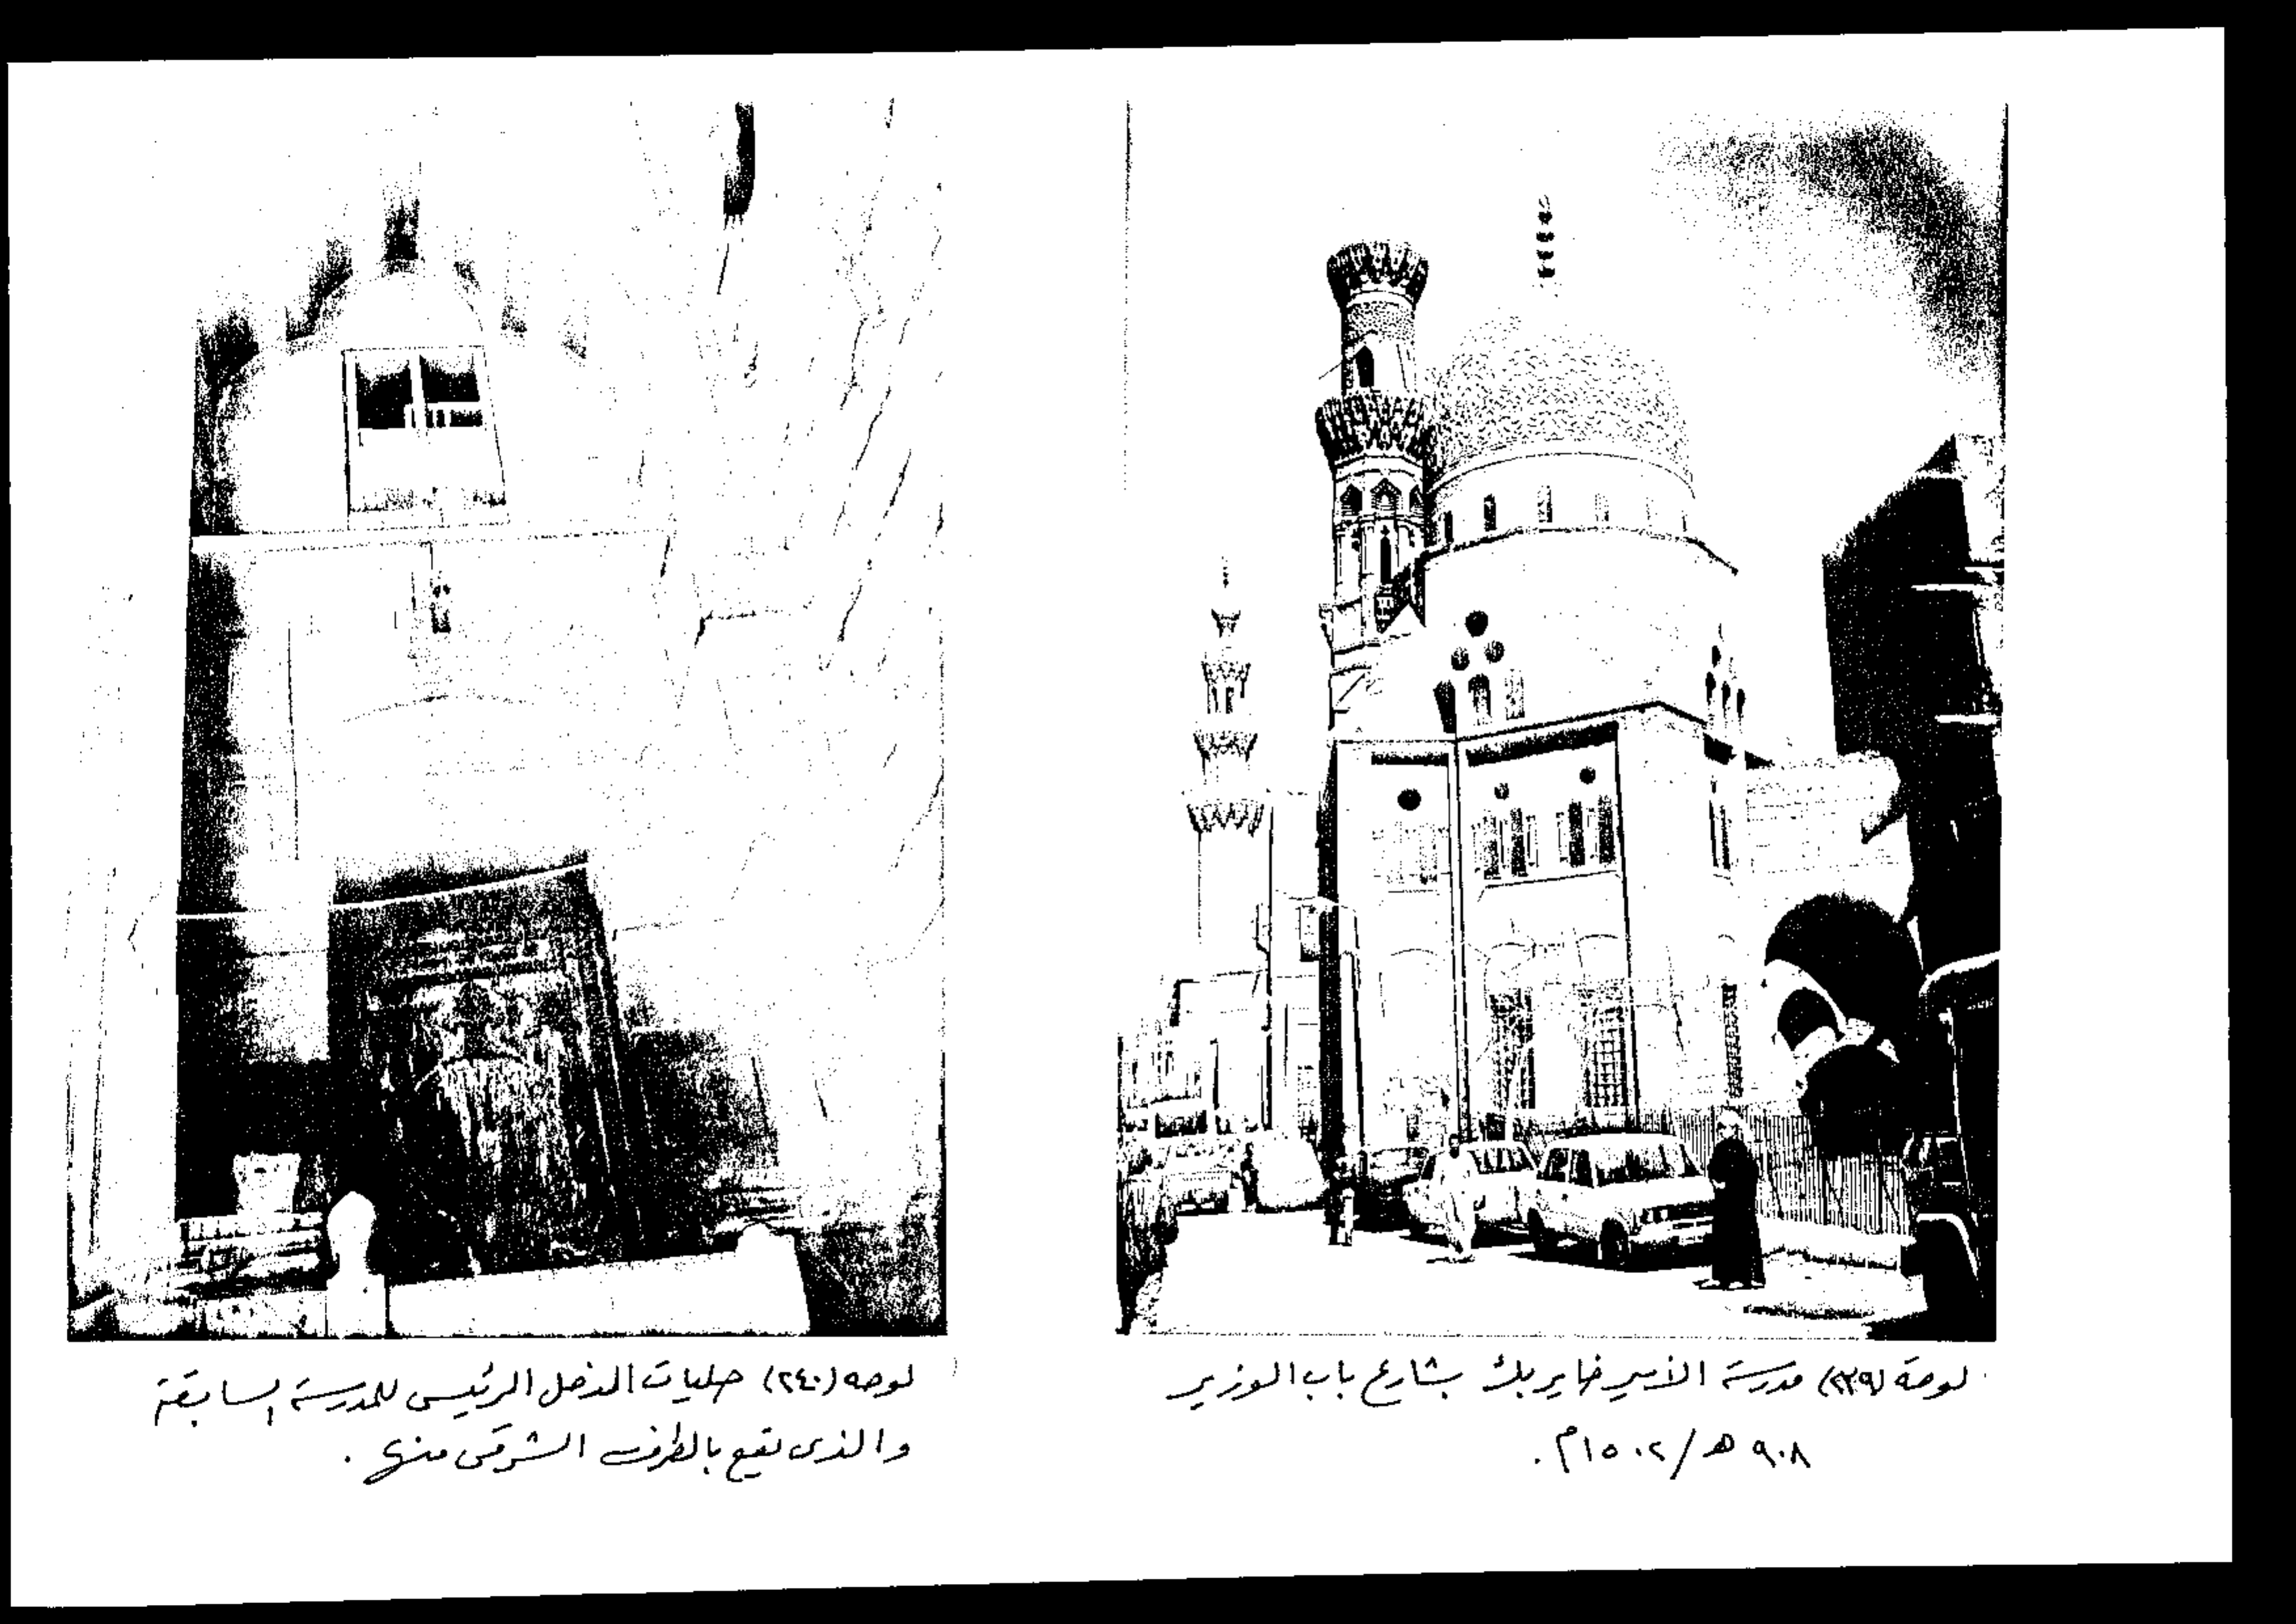 لوحة (٢٣٩) مدرسة الأمير خاير بك بشارع باب الوزير
٩٠٨ هـ / ١٥٠٢م.
لوحه (٢٤٠) حليات المدخل الرئيسى للمدرسة السابقة
والذى يقع بالطرف الشرقى منها .